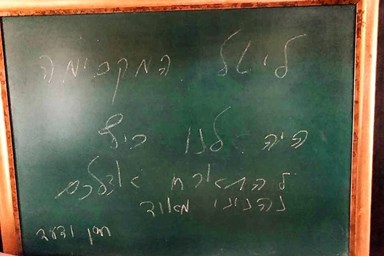 ליטל המקסימה
היה לנו כיף
להתארח אצלכם
נהנינו מאוד
חן ודעד